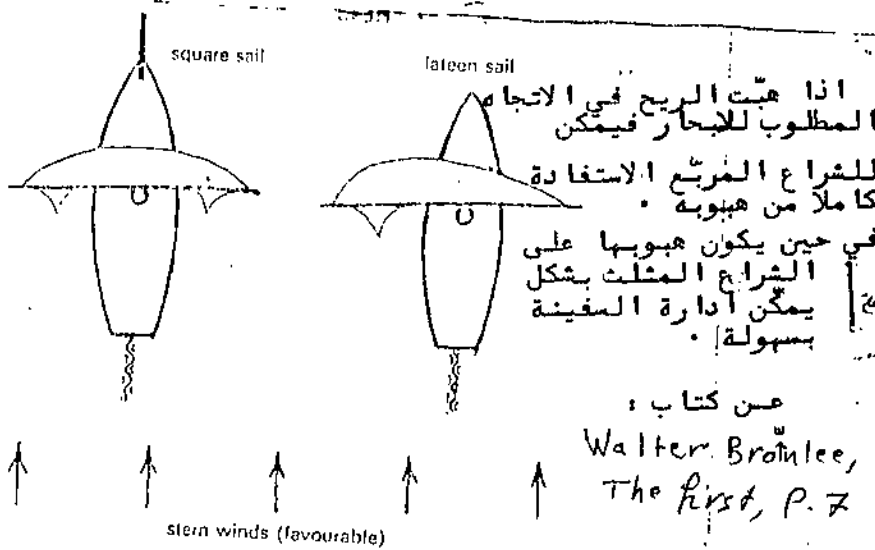 square sail
lateen sail
اذا هبّت الريح في الاتجاه
المطلوب للابحار فيمكن
للشراع المربّع الاستفادة
كاملا من هبوبه .
في حين يكون هبوبها على
الشراع المثلث بشكل
يمكّن ادارة السفينة
بسهولة .
عن كتاب :
Walter Brownlee,
The first, P. 7
stern winds (favourable)